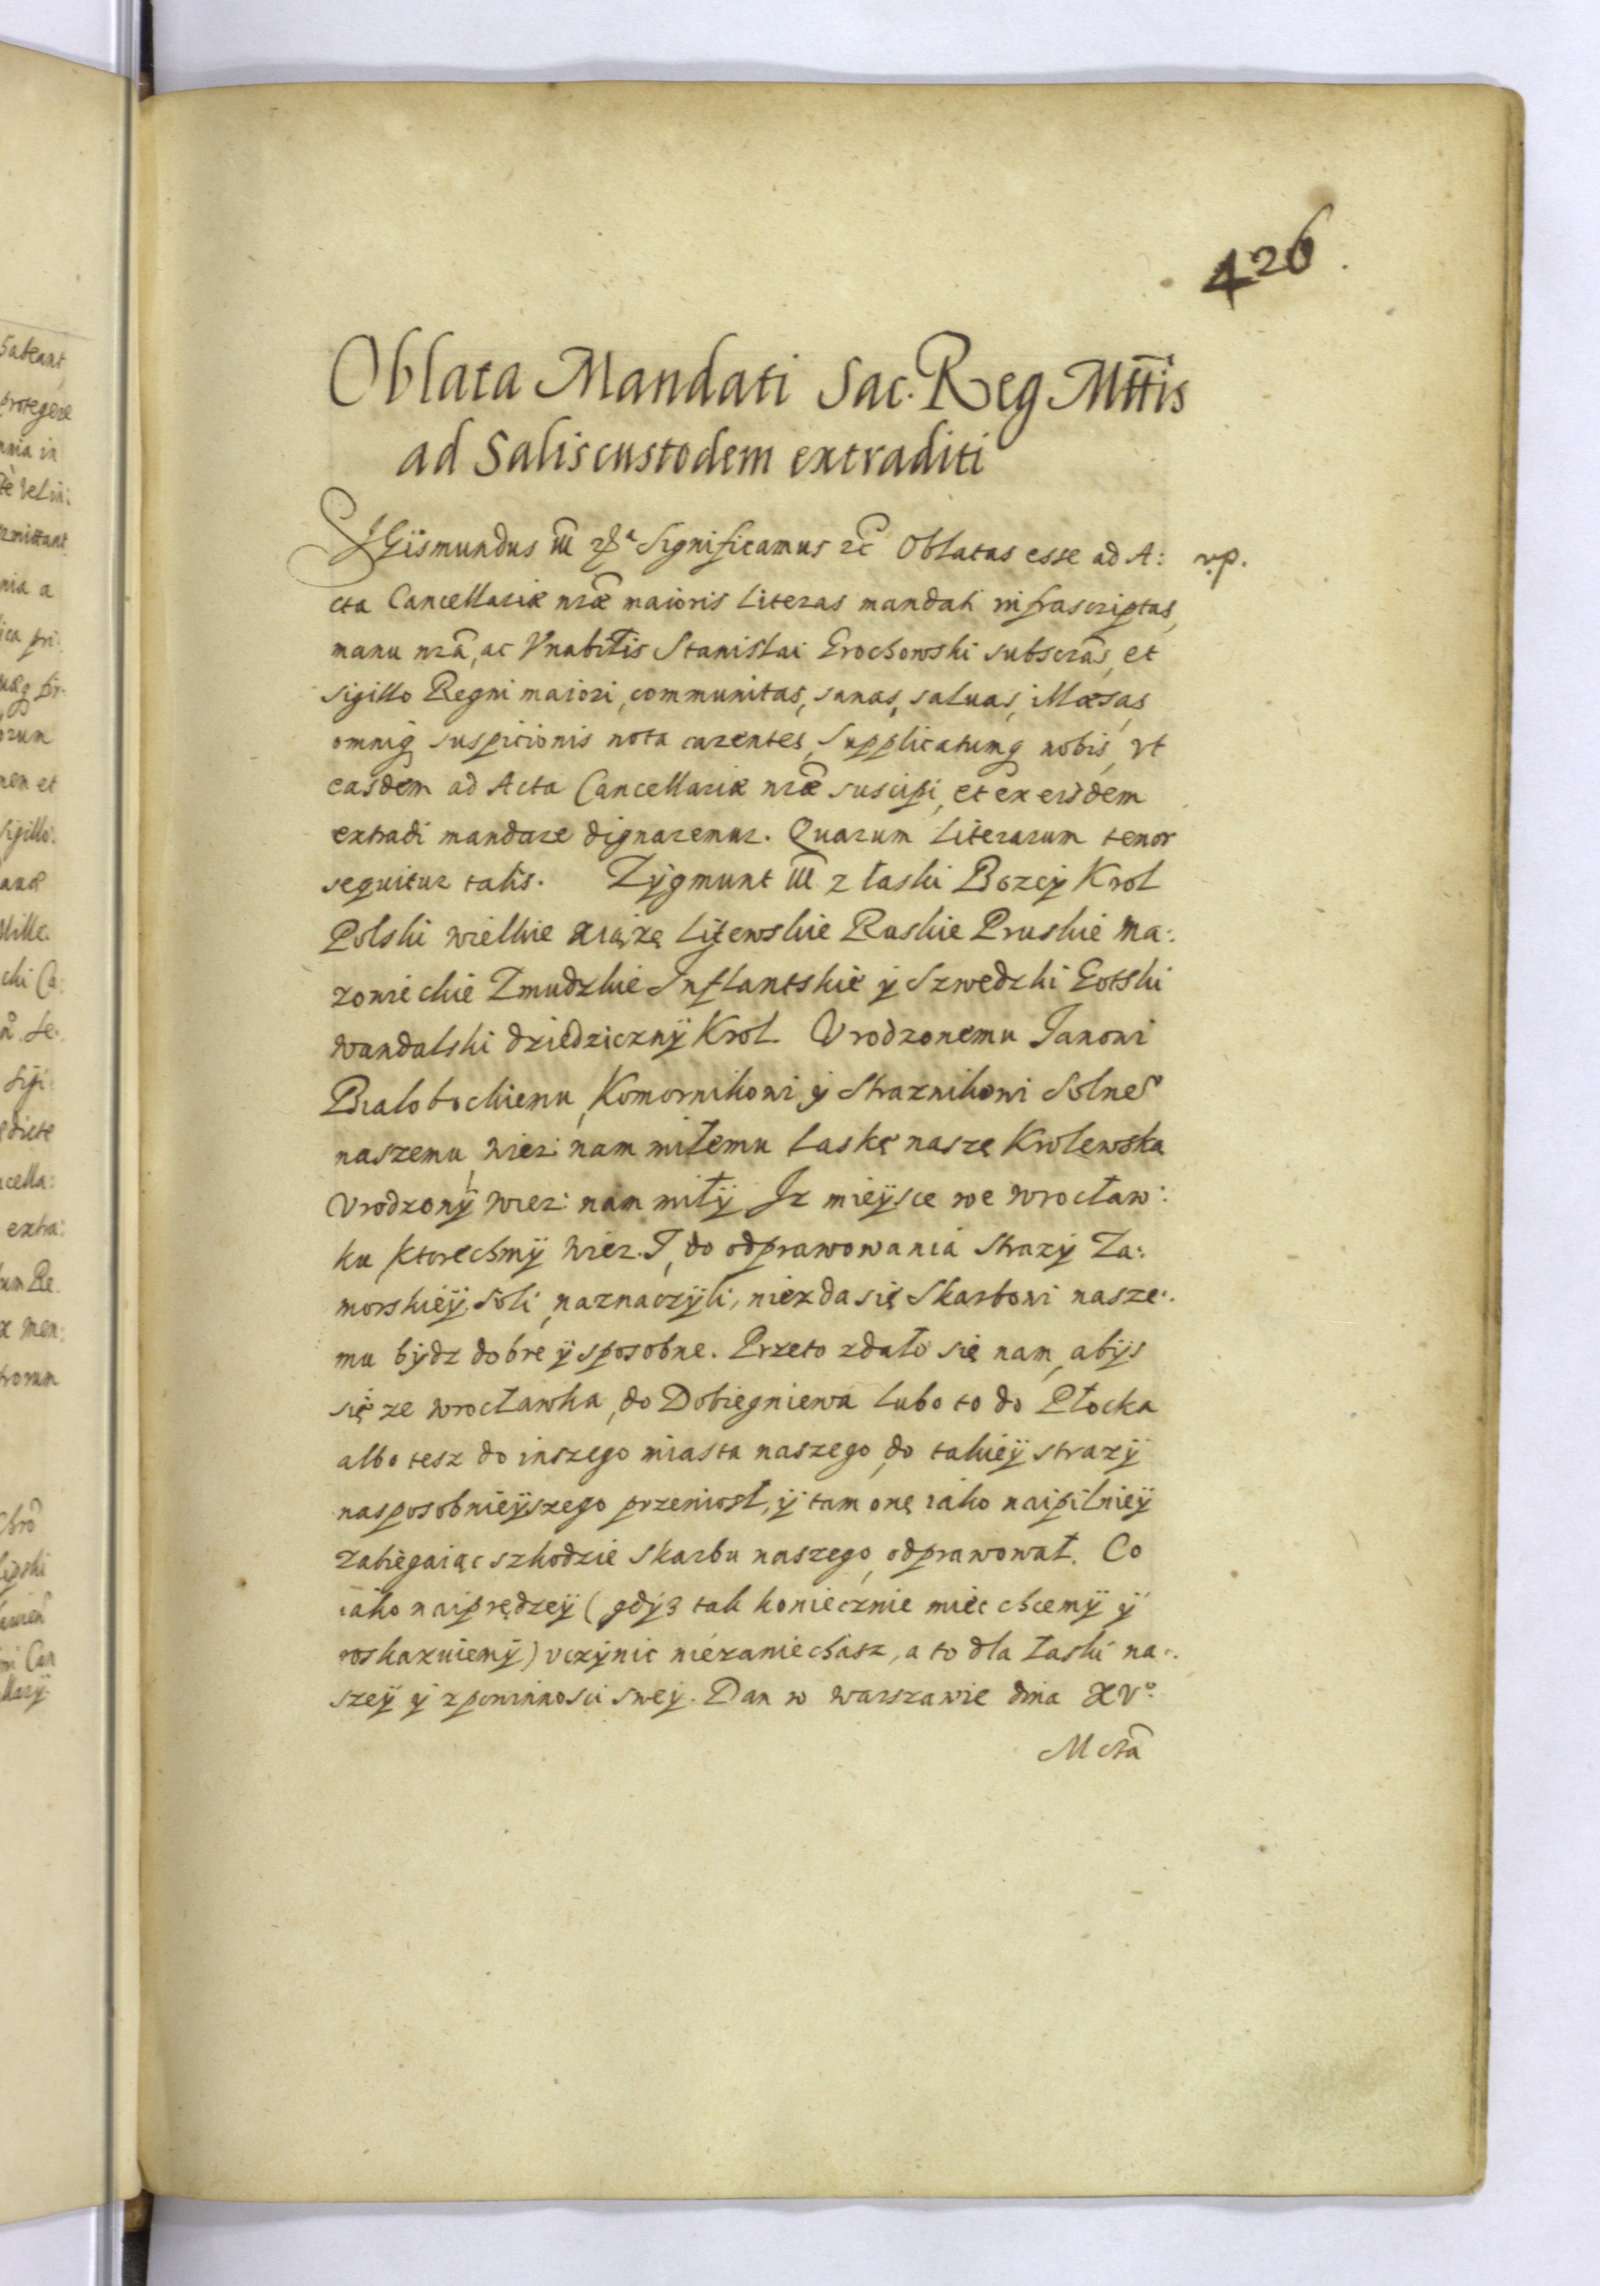 426.
Oblata Mandati Sac. Reg Mttis
ad Saliscustodem extraditi
SGismundus III Significamus Oblatas esse ad A:
v.p.
cta Cancellariæ nræ maioris Literas mandati infrascriptas,
manu nrã, ac Stanislai Grochowski subscrãs, et
sigillo Regni maiori, communitas, sanas, saluas, illæsas,
omniq suspicionis nota carentes, Supplicatumq nobis, vt
easdem ad Acta Cancellariæ nræ suscipi, et ex eisdem
extradi mandare dignaremur. Quarum Literarum tenor
sequitur talis. Zygmunt III z łaski Bozey Krol
Polski wielkie xiążę Litewskie Ruskie Pruskie Ma:
zowieckie Zmudzkie Inflantskie y Szwedzki Gotski
wandalski dziedziczny Krol. Vrodzonemu Janowi
Białobockiemu, Komornikowi y Straznikowi Solne°
naszemu, wier: nam miłemu łaskę naszę Krolewska
Vrodzony wier: nam miły Iz mieysce we wrocław:
ku, ktorechmy wier. T, do odprawowania strazy Za:
morskiey soli, naznaczyli, niezda się Skarbowi nasze:
mu bydz dobre y sposobne. Przeto zdało się nam, abys
się ze wrocławka, do Dobiegniewa lubo to do Płocka
albo tesz do inszego miasta naszego, do takiey strazy
nasposobnieyszego przeniosł, y tam onę iako naipilniey
zabiegaiąc szkodzie skarbu naszego, odprawował. Co
iako naiprędzey (gdyz tak koniecznie miec chcemy y
roskazuiemy) vczynic niezaniechasz, a to dla łaski na:
szey y zpowinnosci swey. Dan w warszawie dnia XV°